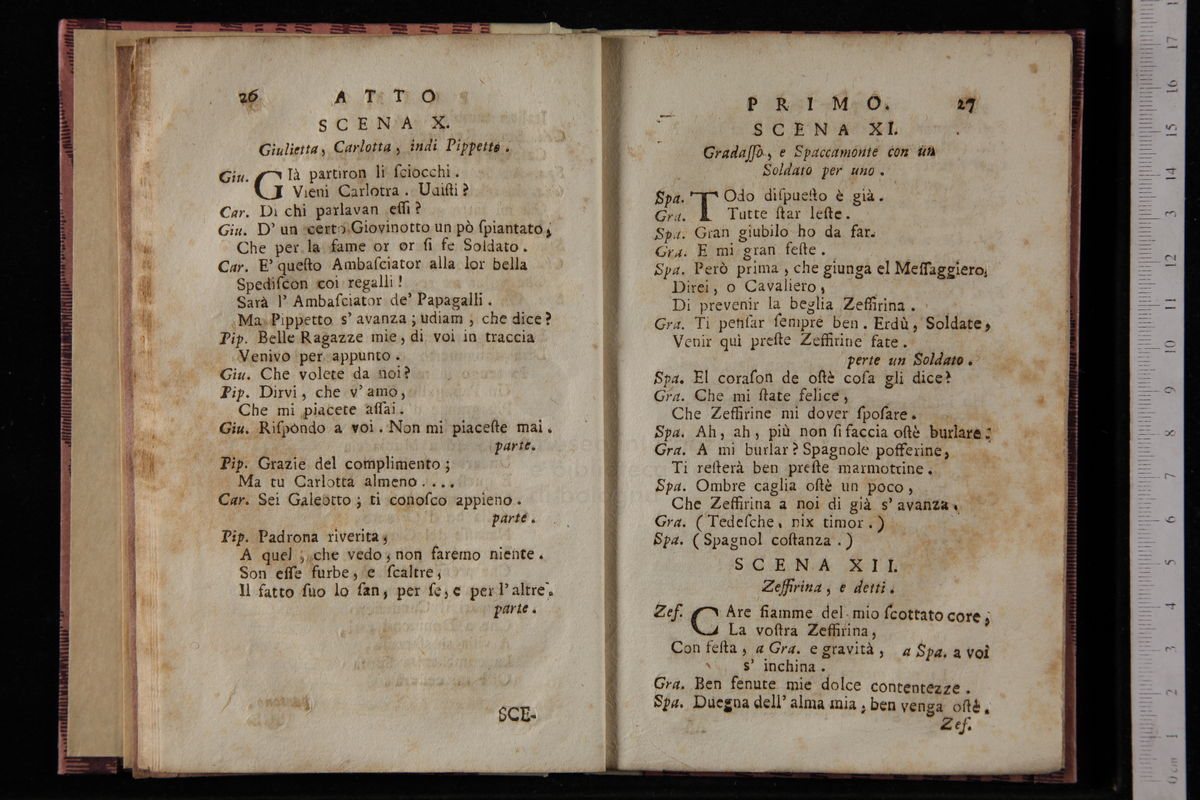 26 ATTO
SCENA X.
Giulietta, Carlotta, indi Pippetto.
Giu. Già partiron li ſciocchi.
Vieni Carlotta. Udiſti?
Car. Di chi parlavan eſſi?
Giu. D' un certo Giovinotto un pò ſpiantato,
Che per la fame or or ſi fe Soldato.
Car. E' queſto Ambaſciator alla lor bella
Spediſcon coi regalli!
Sarà l' Ambaſciator de' Papagalli.
Ma Pippetto s' avanza; udiam, che dice?
Pip. Belle Ragazze mie, di voi in traccia
Venivo per appunto.
Giu. Che volete da noi?
Pip. Dirvi, che v' amo,
Che mi piacete aſſai.
Giu. Riſpondo a voi. Non mi piaceſte mai.
parte.
Pip. Grazie del complimento;
Ma tu Carlotta almeno....
Car. Sei Galeotto; ti conoſco appieno.
parte.
Pip. Padrona riverita,
A quel, che vedo, non faremo niente.
Son eſſe furbe, e ſcaltre,
Il fatto ſuo lo ſan, per ſe, e per l'altre.
parte.
SCE-
PRIMO. 27
SCENA XI.
Gradaſſo, e Spaccamonte con un
Soldato per uno.
Spa. TOdo diſpueſto è già.
Gra. Tutte ſtar leſte.
Spa. Gran giubilo ho da far.
Gra. E mi gran feſte.
Spa. Però prima, che giunga el Meſſaggiero,
Direi, o Cavaliero,
Di prevenir la beglia Zeffirina.
Gra. Ti penſar ſempre ben. Erdù, Soldate,
Venir qui preſte Zeffirine fate.
perte un Soldato.
Spa. El coraſon de oſtè coſa gli dice?
Gra. Che mi ſtate felice,
Che Zeffirine mi dover ſpoſare.
Spa. Ah, ah, più non ſi faccia oſtè burlare.
Gra. A mi burlar? Spagnole poſſerine,
Ti reſterà ben preſte marmottine.
Spa. Ombre caglia oſtè un poco,
Che Zeffirina a noi di già s' avanza.
Gra. (Tedeſche, nix timor.)
Spa. (Spagnol coſtanza.)
SCENA XII.
Zeffirina, e detti.
Zef. CAre fiamme del mio ſcottato core,
La voſtra Zeffirina,
Con feſta, a Gra. e gravità, a Spa. a voi
s' inchina.
Gra. Ben fenute mie dolce contentezze.
Spa. Duegna dell' alma mia, ben venga oſtè.
Zef.